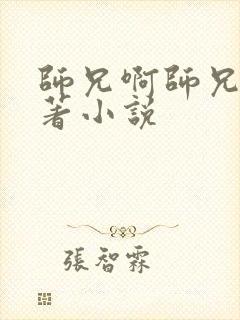 師兄啊師兄
著小説
張智霖